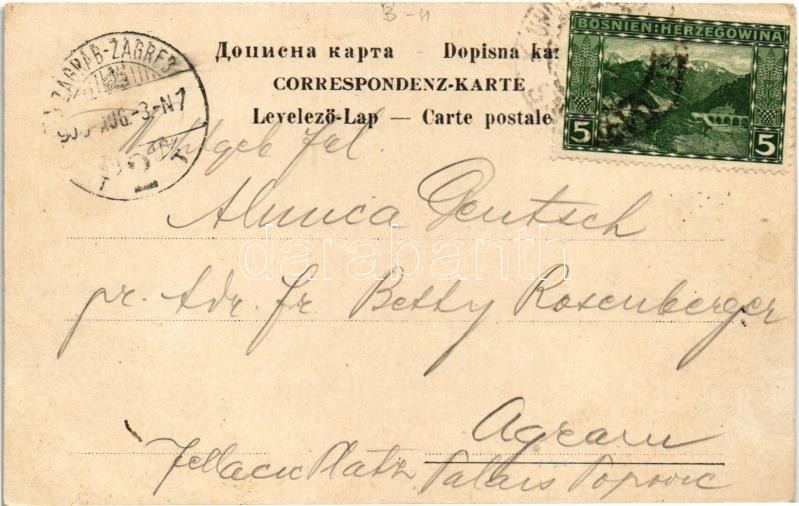 B-H
Дописна карта — Dopisna kar
CORRESPONDENZ-KARTE
Levelező-Lap — Carte postale
BOSNIEN:HERZEGOWINA
5 5
ZÁGRÁB-ZAGREB
AUG.-3.-N7
Wohlgeb Frl.
Alunca Deutsch
darabanth
pr. Adr. fr. Betty Rosenberger
Agram
Jellacic Platz Palais Popovic